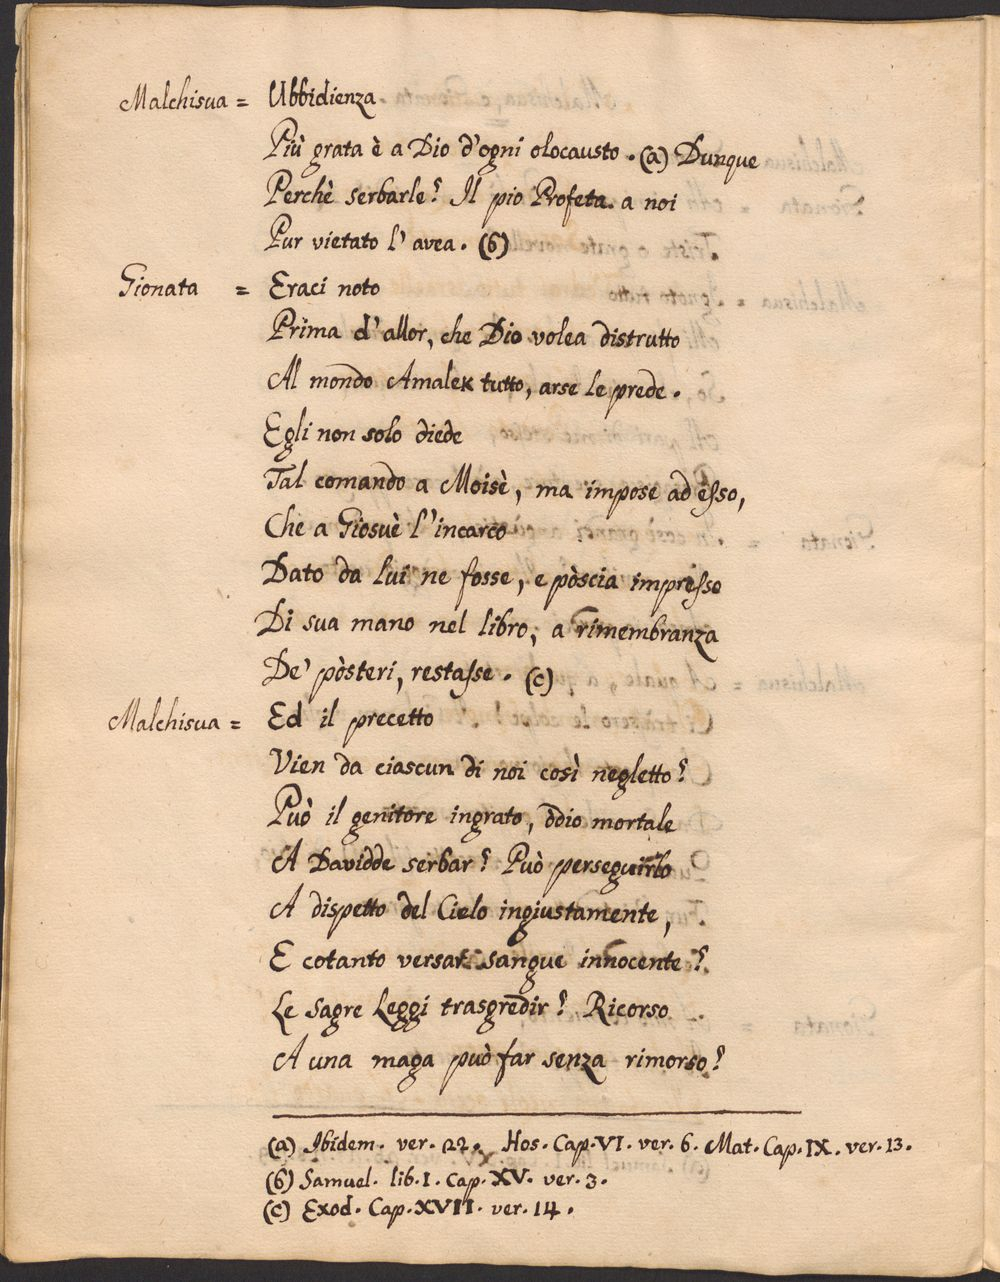 Malchisua = Ubbidienza.
Più grata è a Dio d'ogni olocausto. (a) Dunque
Perchè serbarle? Il pio Profeta a noi
Pur vietato l'avea. (b)
Gionata = Eraci noto
Prima d'allor, che Dio volea distrutto
Al mondo Amalek tutto, arse le prede.
Egli non solo diede
Tal comando a Moisè, ma impose ad esso,
Che a Giosuè l'incarco
Dato da lui ne fosse, e pòscia impresso
Di sua mano nel libro, a rimembranza
De' pòsteri, restasse. (c)
Malchisua = Ed il precetto
Vien da ciascun di noi così negletto?
Può il genitore ingrato, òdio mortale
A Davidde serbar? Può perseguirlo
A dispetto del Cielo ingiustamente,
E cotanto versar sangue innocente?
Le Sagre Leggi trasgredir? Ricorso
A una maga può far senza rimorso?
(a) Ibidem. ver. 22. Hos. Cap. VI. ver. 6. Mat. Cap. IX. ver. 13.
(b) Samuel. lib. I. Cap. XV. ver. 3.
(c) Exod. Cap. XVII. ver. 14.